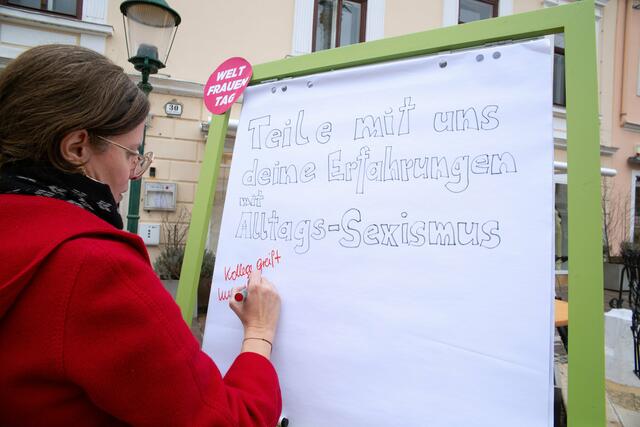 WELT
FRAUEN
TAG
30
Teile mit uns
deine Erfahrungen
mit
Alltags-Sexismus
Kollege greift